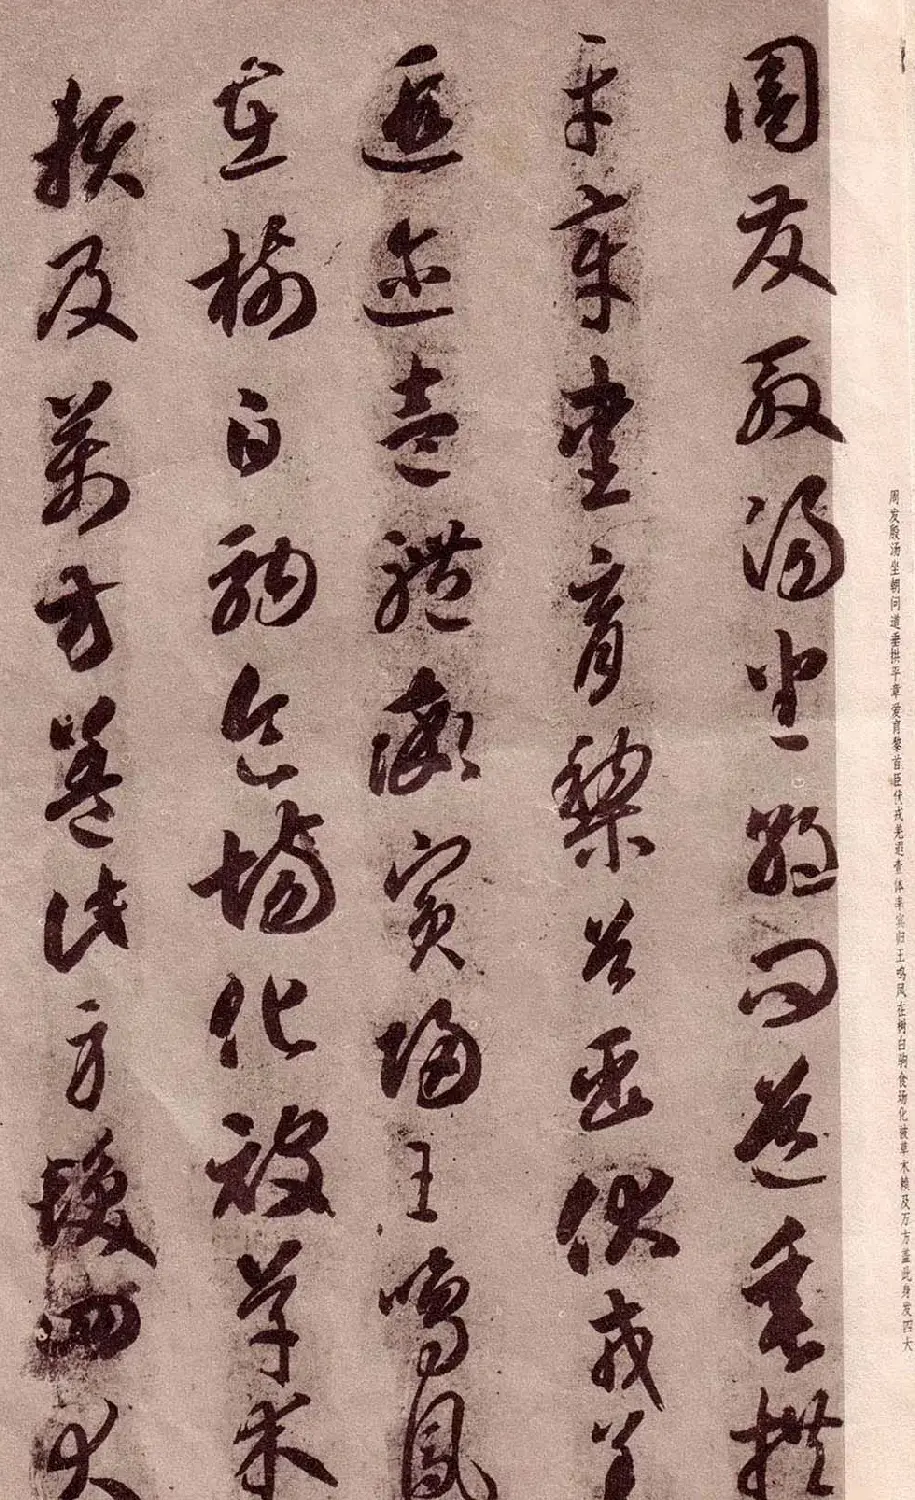 周發殷湯坐朝問道垂拱
平章愛育黎首臣伏戎羌
遐邇壹體率賓歸王鳴鳳
在樹白駒食場化被草木
賴及萬方蓋此身髮四大
周发殷汤坐朝问道垂拱平章爱育黎首臣伏戎羌遐壹体率宾归王鸣凤在树白驹食场化被草木赖及万方盖此身发四大